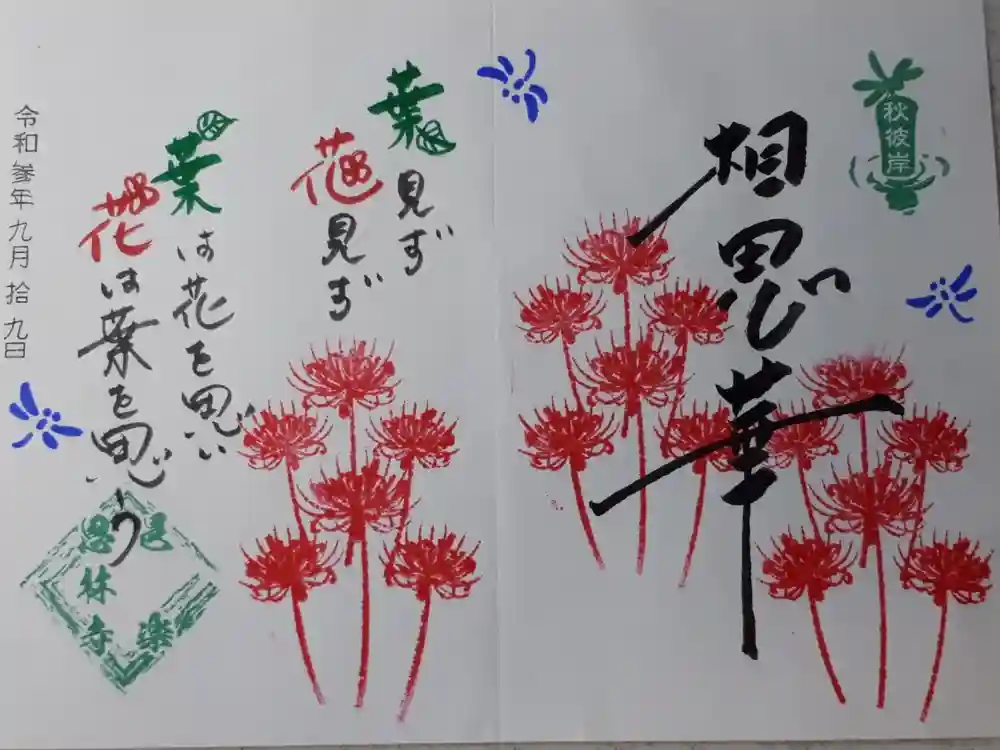 秋彼岸
相思華
葉見ず
花見ず
葉は花を思い
花は葉を思う
令和参年九月拾九日
恩林寺